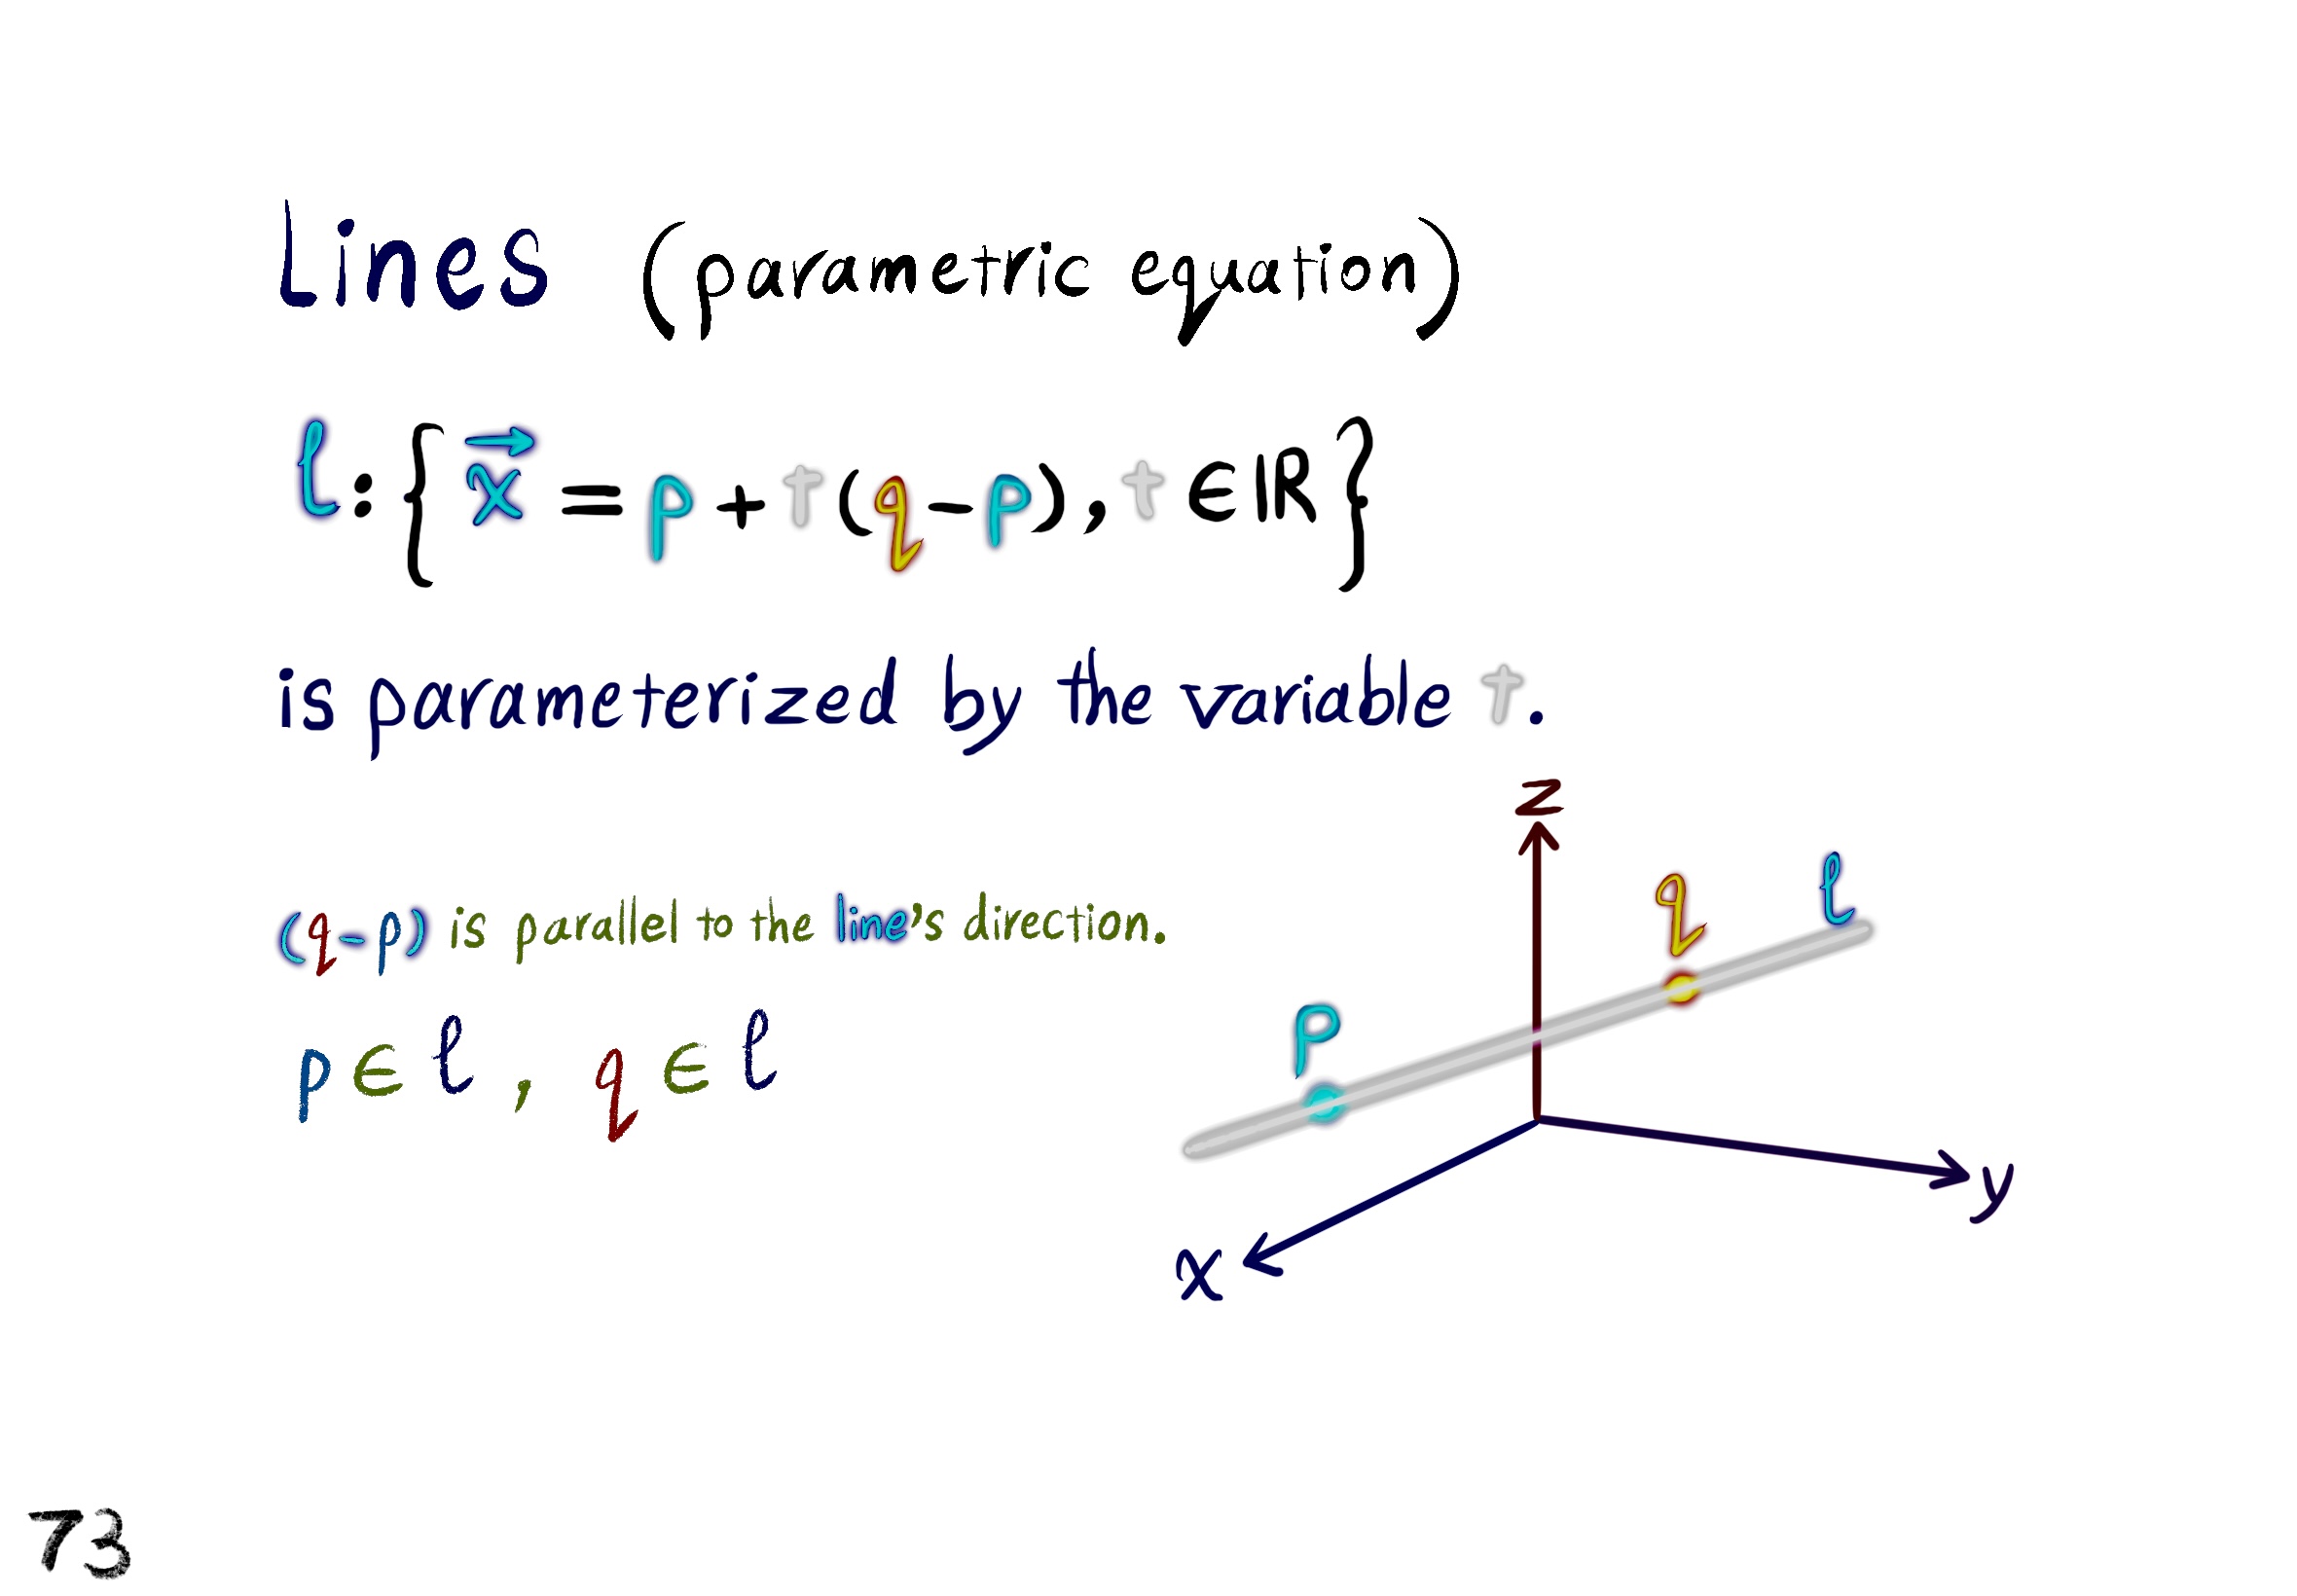 Lines (parametric equation)
ℓ:{x⃗ = p + t(q-p), t ∈ ℝ}
is parameterized by the variable t.
(q-p) is parallel to the line's direction.
p ∈ ℓ, q ∈ ℓ
z
q
ℓ
p
y
x
73